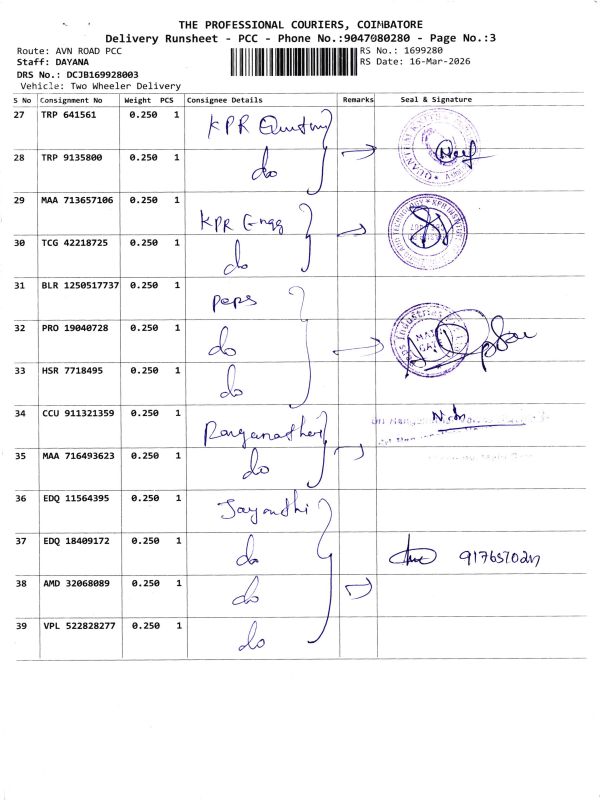 THE PROFESSIONAL COURIERS, COIMBATORE
Delivery Runsheet - PCC - Phone No.:9047080280 - Page No.:3
Route: AVN ROAD PCC
RS No.: 1699280
Staff: DAYANA
RS Date: 16-Mar-2026
DRS No.: DCJB169928003
Vehicle: Two Wheeler Delivery
S No Consignment No Weight PCS Consignee Details Remarks Seal & Signature
27 TRP 641561 0.250 1 KPR
28 TRP 9135800 0.250 1 do
29 MAA 713657106 0.250 1 KPR Engg
30 TCG 42218725 0.250 1 do
31 BLR 1250517737 0.250 1 peps
32 PRO 19040728 0.250 1 do
33 HSR 7718495 0.250 1 do
34 CCU 911321359 0.250 1
35 MAA 716493623 0.250 1 do
36 EDQ 11564395 0.250 1 Jayandhi
37 EDQ 18409172 0.250 1 do
38 AMD 32068089 0.250 1 do
39 VPL 522828277 0.250 1 do